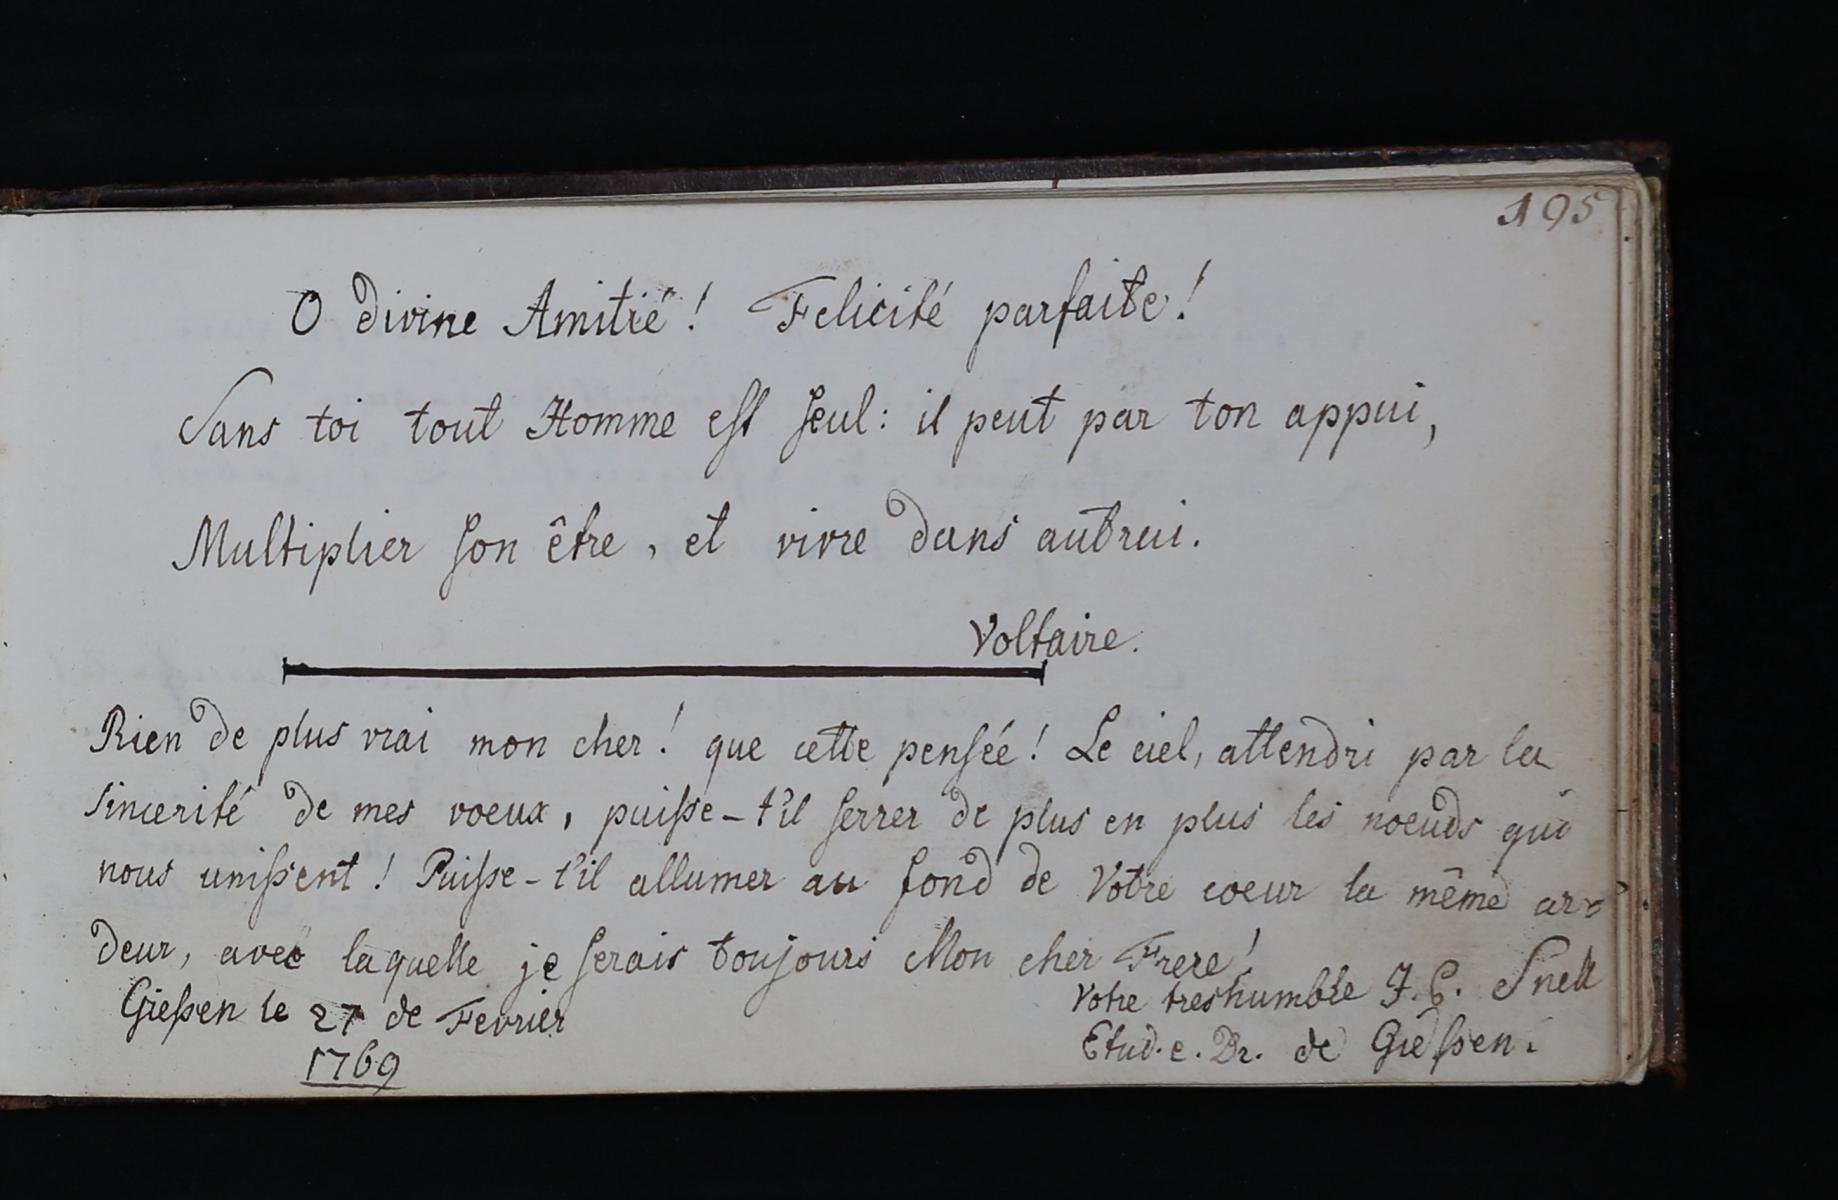 195
O divine Amitié! Felicité parfaite!
Sans toi tout Homme est seul: il peut par ton appui,
Multiplier son être, et vivre dans autrui.
Voltaire.
Rien de plus vrai mon cher! que cette pensée! Le ciel, attendri par la
sincerité de mes voeux, puisse-t'il serrer de plus en plus les noeuds qui
nous unissent! Puisse-t'il allumer au fond de Votre coeur la même ar-
deur, avec laquelle je serais toujours Mon cher Frere!
Giessen le 27 de Fevrier
1769
Votre treshumble J. C. Snell
Etud. e. Dr. de Giessen.